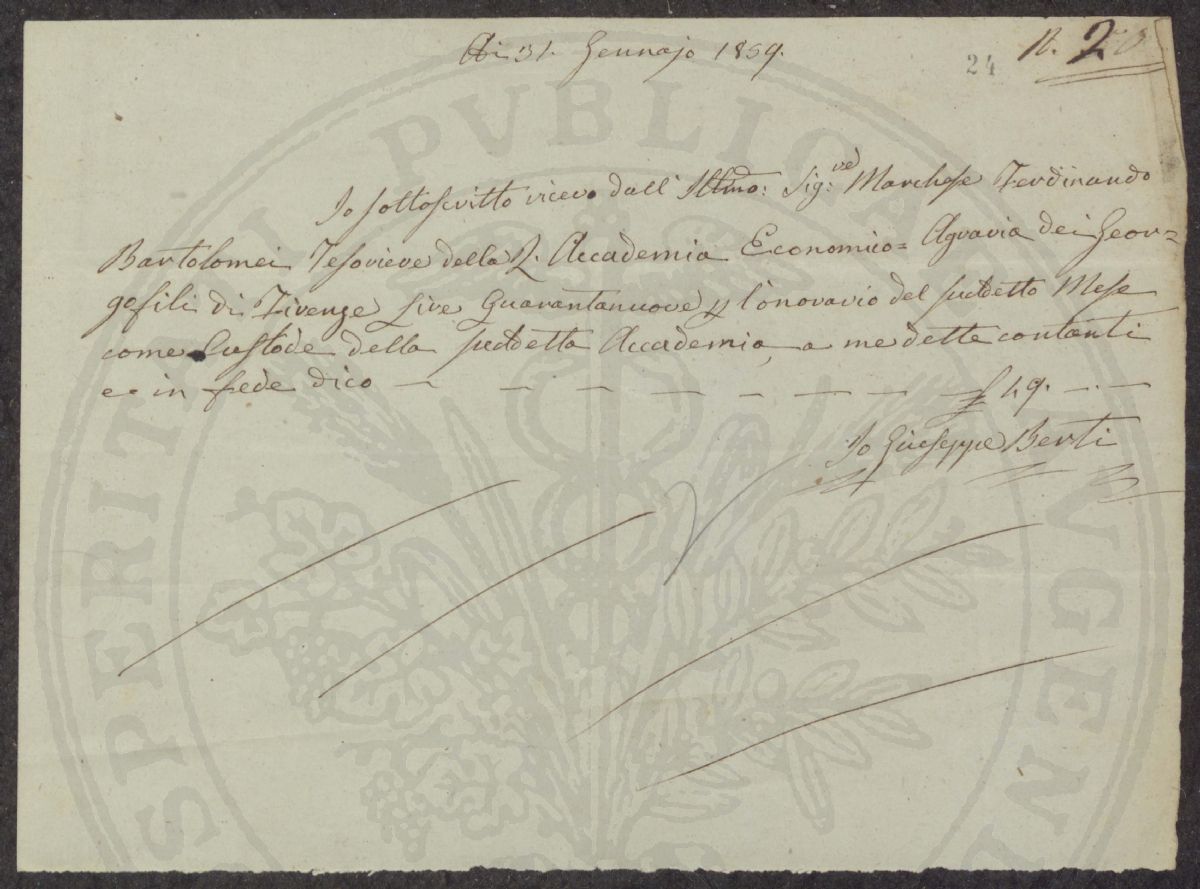 Adi 31. Gennajo 1859.
24
N. 2
Io sottoscritto ricevo dall' Illmo: Sig:re Marchese Ferdinando
Bartolomei Tesoriere della R. Accademia Economico= Agraria dei Geor=
gofili di Firenze Lire Quarantanuove p l'onorario del suddetto Mese
come Custode della suddetta Accademia, a me dette contanti
e in fede dico — — — — — — — — £ 49. — —
Io Giuseppe Berti
PROSPERITATI PUBLICAE AUGENDAE